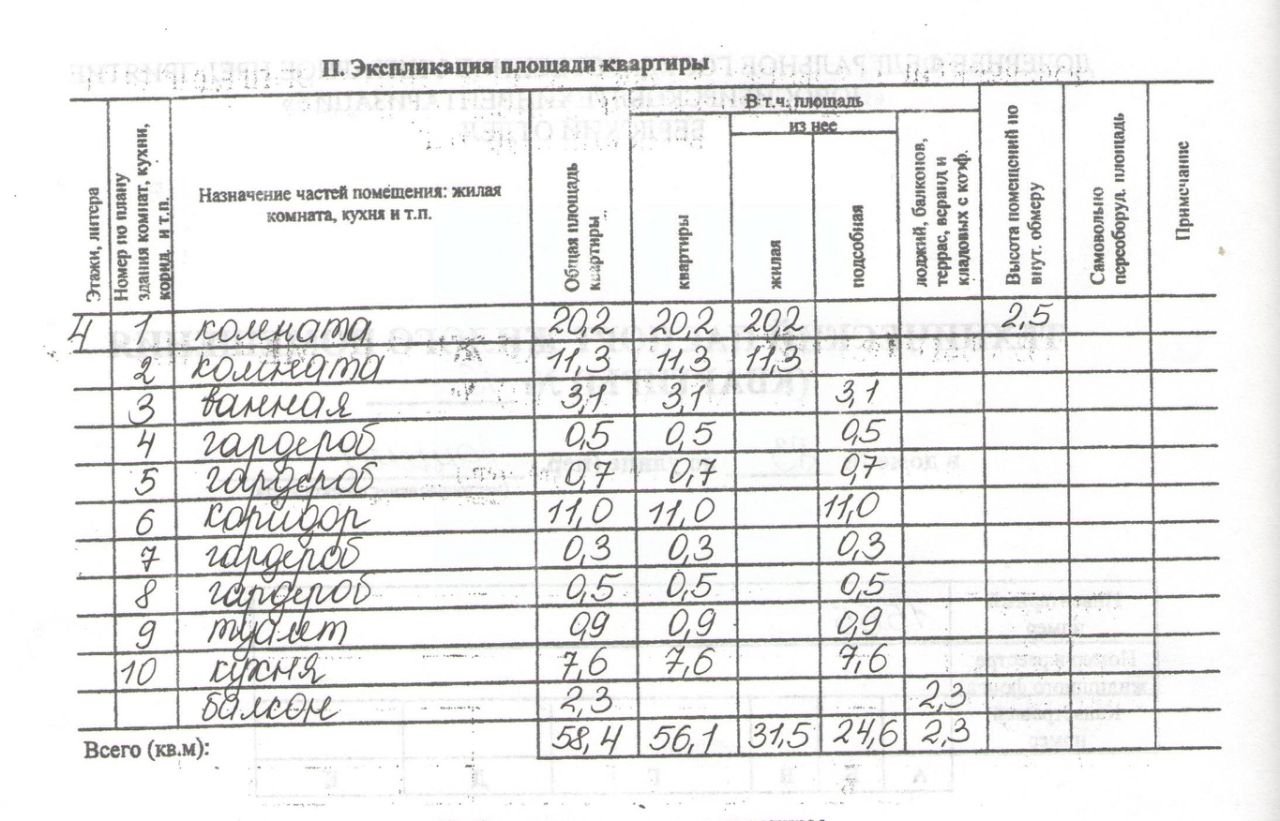 II. Экспликация площади квартиры
Этажи, литера
Номер по плану здания комнат, кухни, корид. и т.п.
Назначение частей помещения: жилая комната, кухня и т.п.
Общая площадь квартиры
В т.ч. площадь
квартиры
из нее
жилая
подсобная
лоджий, балконов, террас, веранд и кладовых с коэф.
Высота помещений по внут. обмеру
Самовольно переоборуд. площадь
Примечание
4 1 комната 20,2 20,2 20,2 2,5
2 комната 11,3 11,3 11,3
3 ванная 3,1 3,1 3,1
4 гардероб 0,5 0,5 0,5
5 гардероб 0,7 0,7 0,7
6 коридор 11,0 11,0 11,0
7 гардероб 0,3 0,3 0,3
8 гардероб 0,5 0,5 0,5
9 туалет 0,9 0,9 0,9
10 кухня 7,6 7,6 7,6
балкон 2,3 2,3
Всего (кв.м): 58,4 56,1 31,5 24,6 2,3